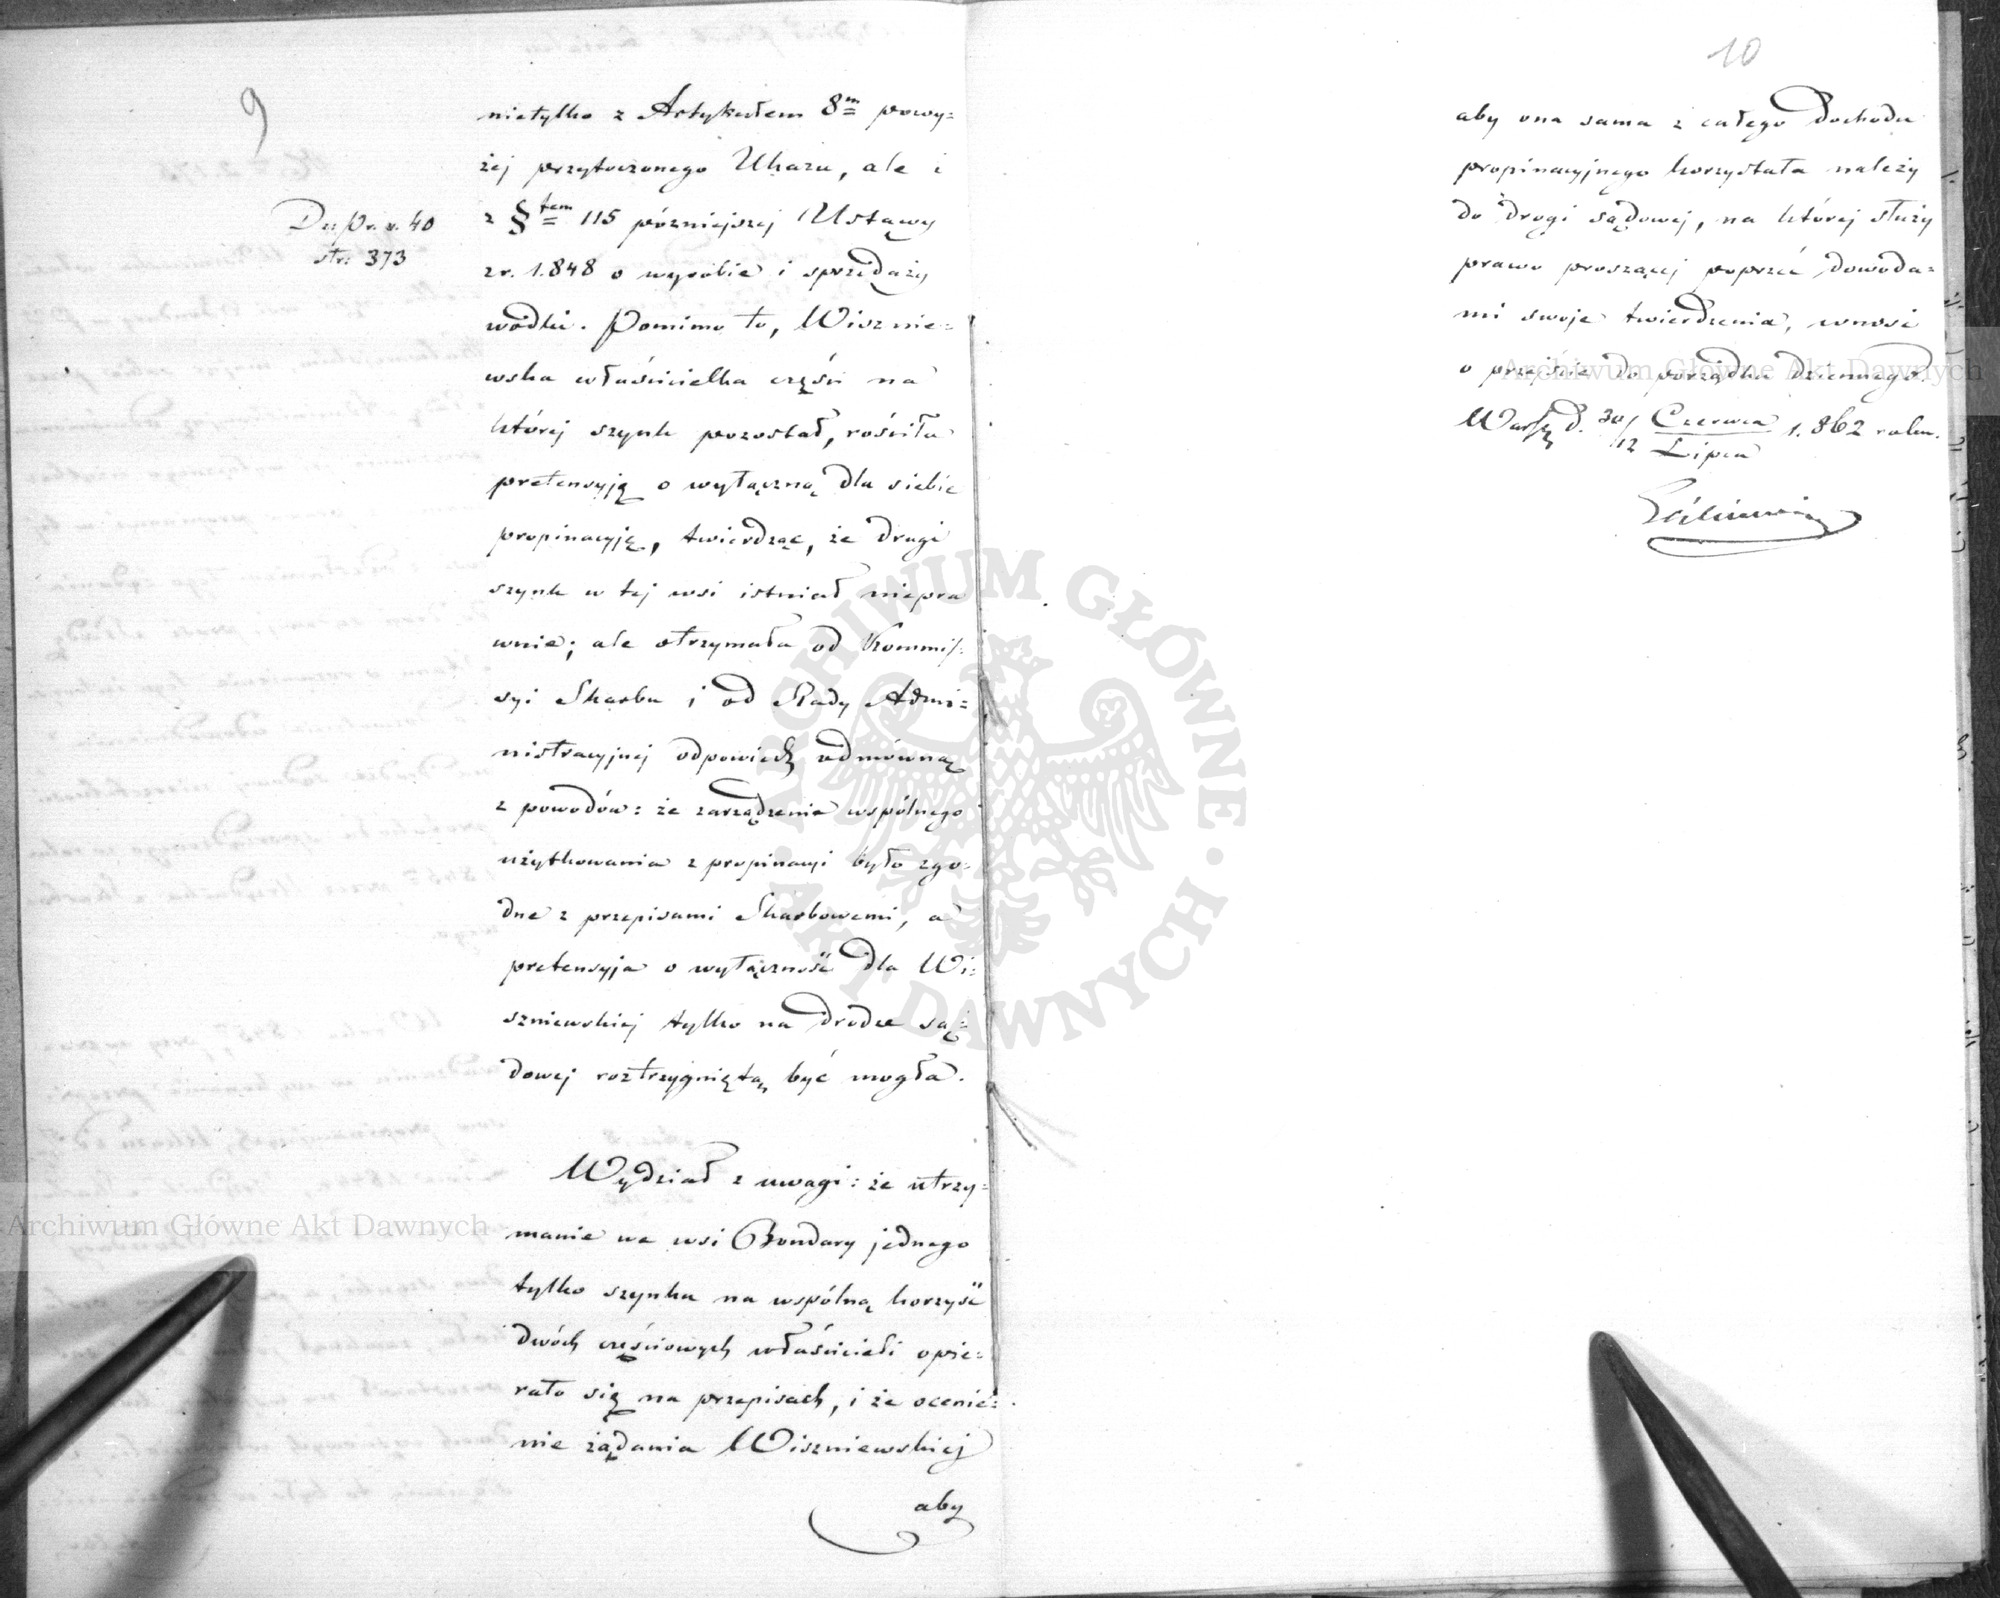 9
Dz: Pr. v. 40
str: 373
nietylko z Artykułem 8m powy=
żej przytoczonego Ukazu, ale i
z §tem 115 późniejszej Ustawy
z r. 1.848 o wyrobie i sprzedaży
wódki. Pomimo to, Wisznie=
wska właścicielka części na
której szynk pozostał, rościła
pretensyją o wyłączną dla siebie
propinacyję, twierdząc, że drugi
szynk w tej wsi istniał niepra
wnie; ale otrzymała od Kommis=
syi Skarbu i od Rady Admi=
nistracyjnej odpowiedź odmówną
z powodów: że zarządzenie wspólnego
użytkowania z propinacyi było zgo=
dne z przepisami Skarbowemi, a
pretensyja o wyłączność dla Wi=
szniewskiej tylko na drodze są=
dowej roztrzygniętą być mogła.
Wydział z uwagi: że utrzy=
manie we wsi Bondary jednego
tylko szynku na wspólną korzyść
dwóch częściowych właścicieli opie=
rało się na przepisach, i że ocenie=
nie żądania Wiszniewskiej
aby
10
aby ona sama z całego dochodu
propinacyjnego korzystała należy
do drogi sądowej, na której służy
prawo proszącej poprzeć dowoda=
mi swoje twierdzenia, wnosi
o przejście do porządku dziennego.
Warsz. d. 30/12 Czerwca/Lipca 1.862 roku.
ARCHIWUM GŁÓWNE · AKT DAWNYCH ·
Archiwum Główne Akt Dawnych
Archiwum Główne Akt Dawnych